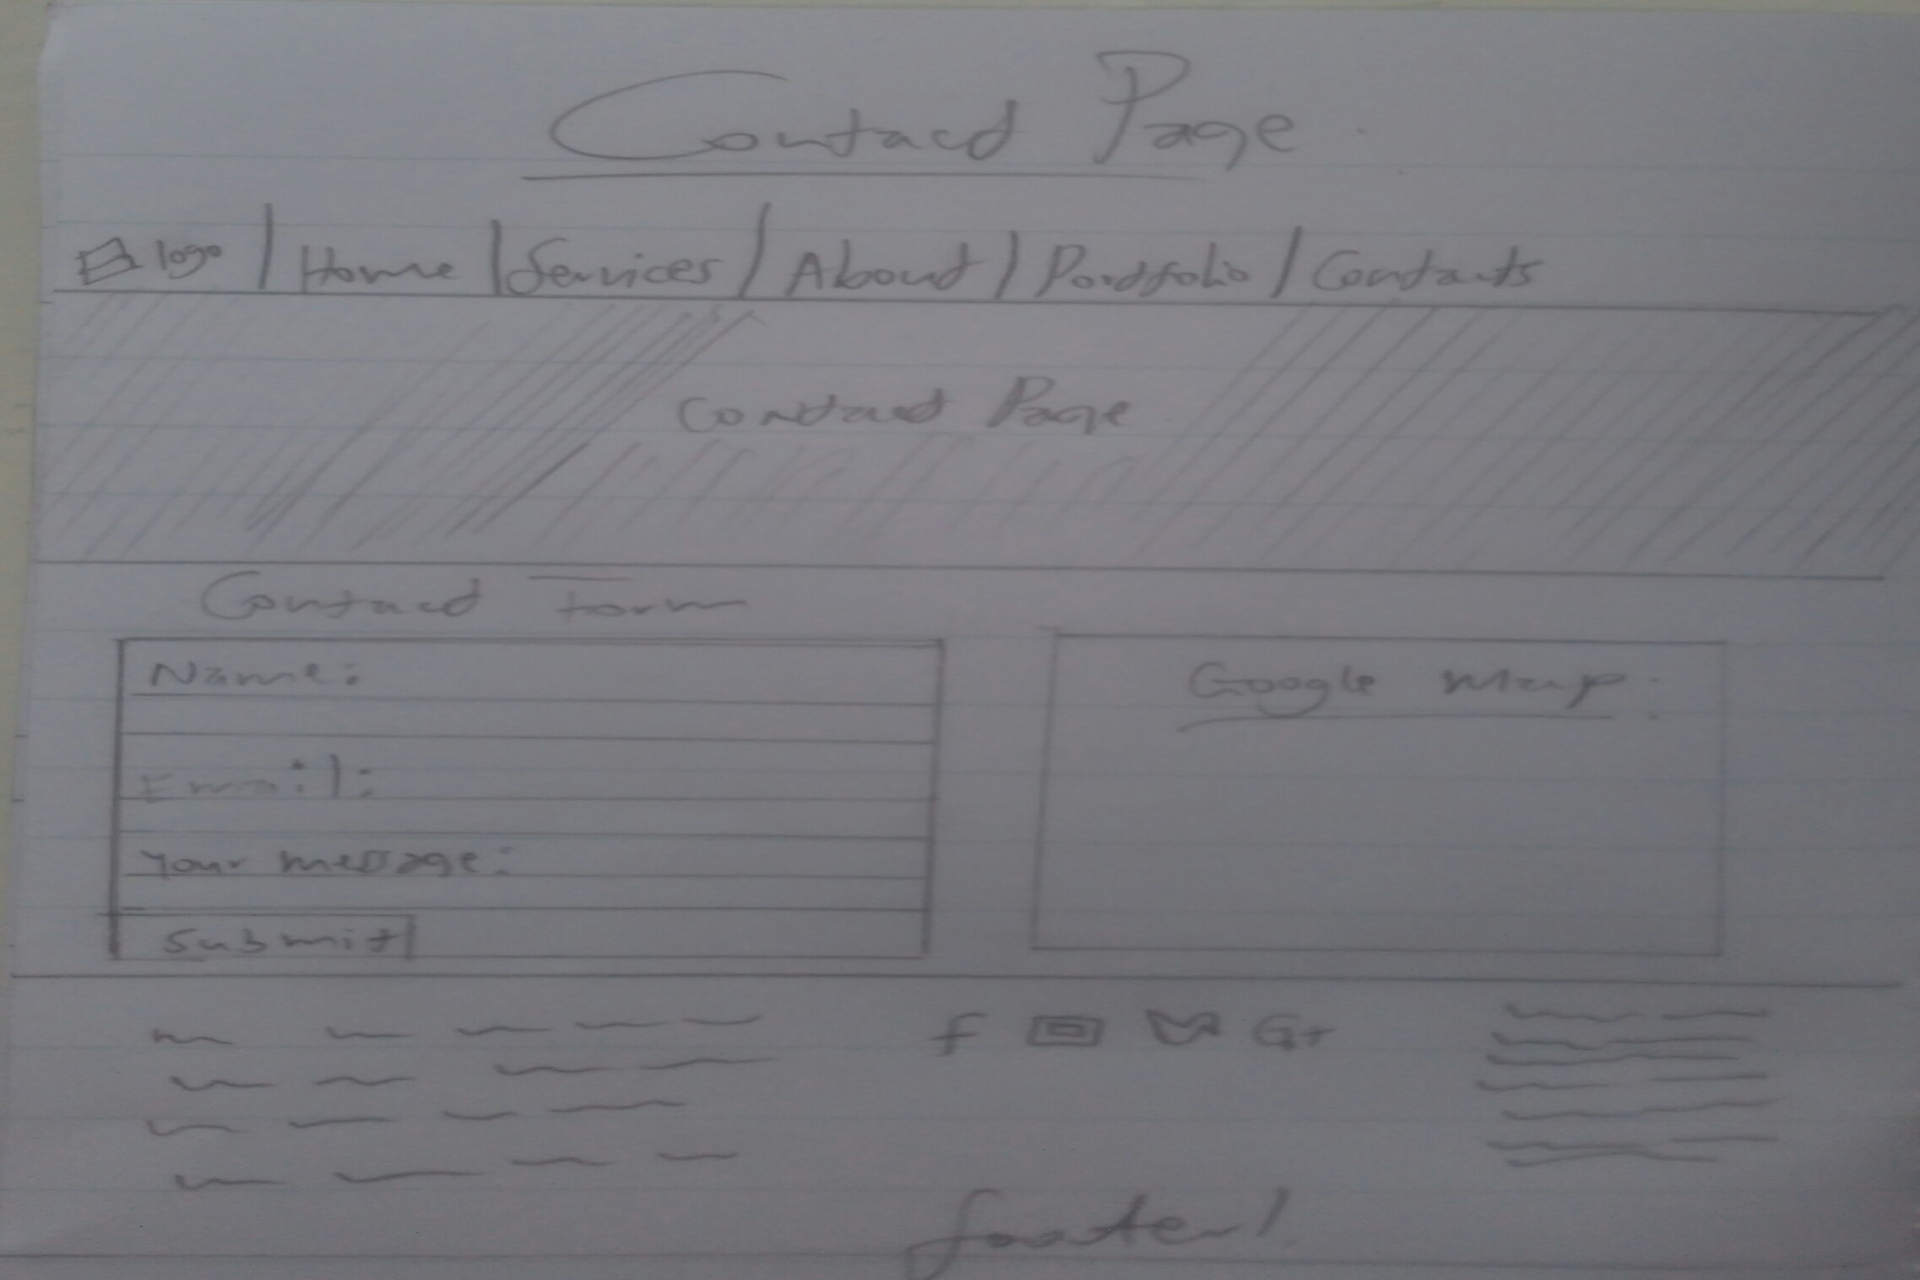 Contact Page
logo | Home | Services | About | Portfolio | Contacts
Contact Page
Contact Form
Name:
Google Map
Email:
Your message:
Submit
f G+
footer!